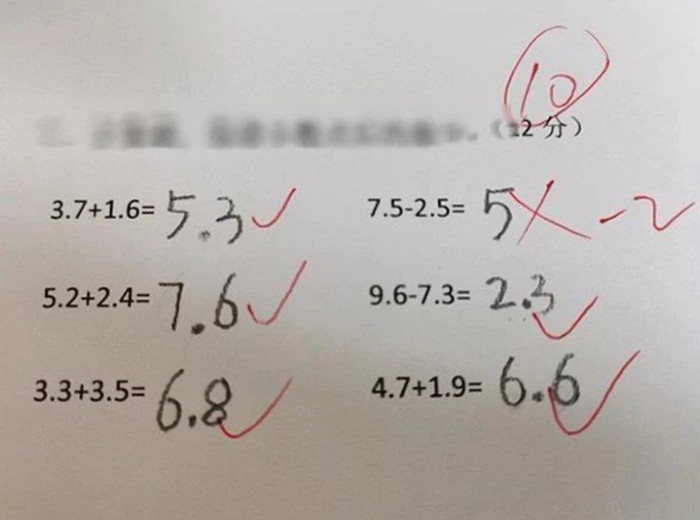 10
(12分)
3.7+1.6= 5.3 ✓ 7.5-2.5= 5 ✗ -2
5.2+2.4= 7.6 ✓ 9.6-7.3= 2.3 ✓
3.3+3.5= 6.8 ✓ 4.7+1.9= 6.6 ✓